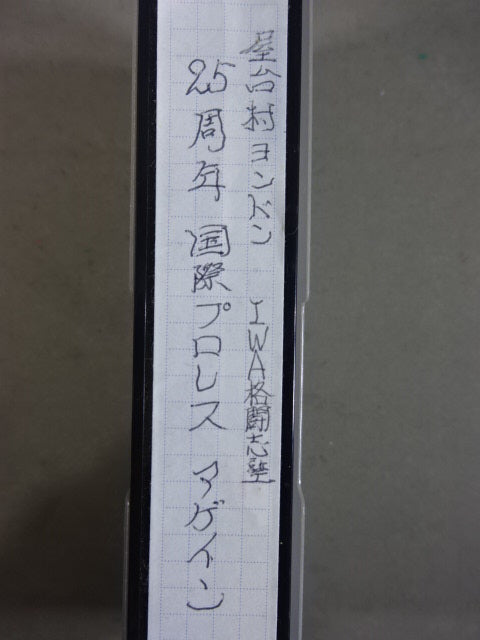 屋台村ヨンドン IWA格闘志塾
25周年 国際プロレス アゲイン